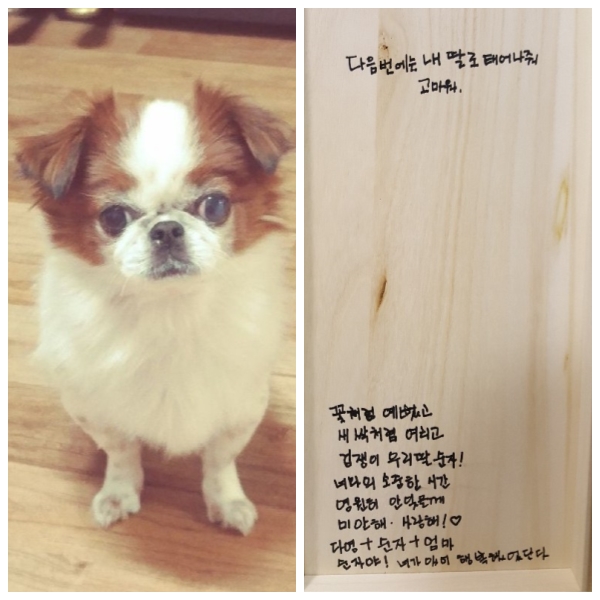 다음번에는 내 딸로 태어나줘
고마워.
꽃처럼 예뻤고
새싹처럼 여리고
겁쟁이 우리딸 순자!
너와의 소중한 시간
영원히 안잊을게
미안해. 사랑해!♡
다영+순자+엄마
순자야! 너가 있어 행복했단다